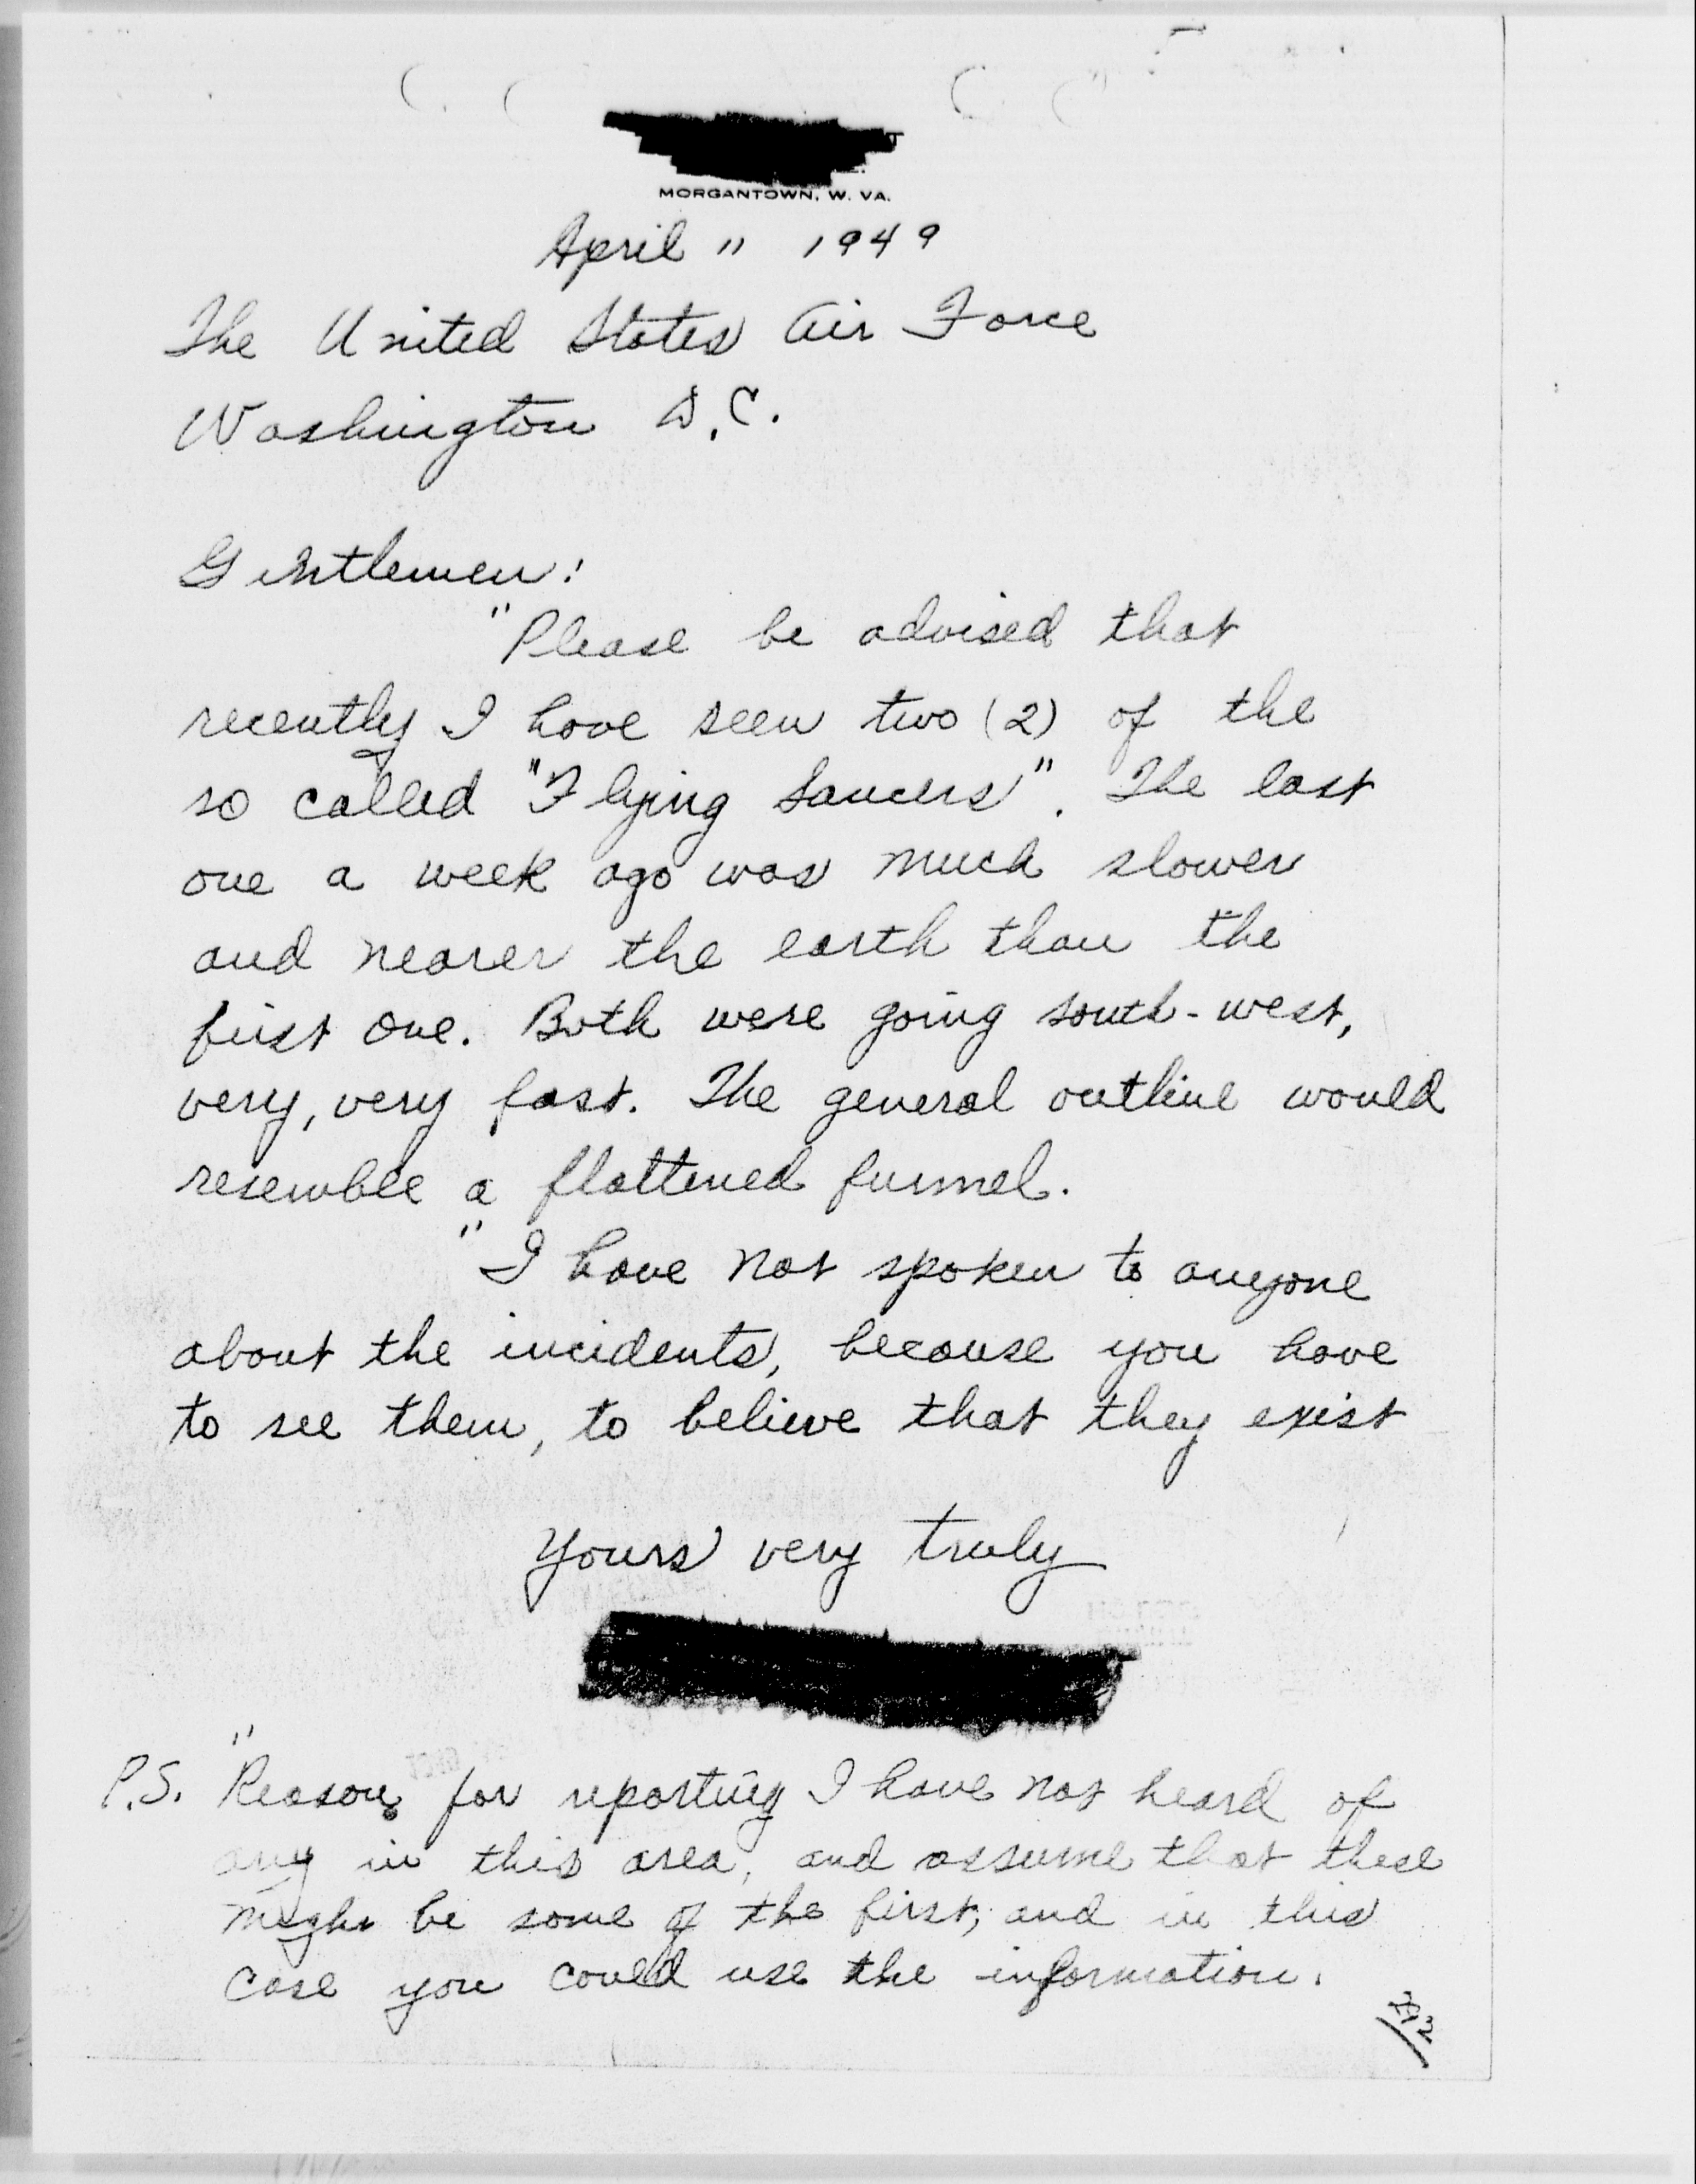 MORGANTOWN, W. VA.
April 11 1949
The United States Air Force
Washington D.C.
Gentlemen:
"Please be advised that
recently I have seen two (2) of the
so called "Flying Saucers". The last
one a week ago was much slower
and nearer the earth than the
first one. Both were going south-west,
very, very fast. The general outline would
resemble a flattened funnel.
"I have not spoken to anyone
about the incidents, because you have
to see them, to believe that they exist
Yours very truly
P.S. "Reason for reporting I have not heard of
any in this area, and assume that these
might be some of the first, and in this
case you could use the information.